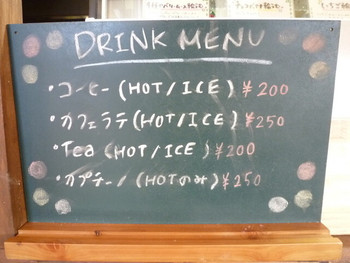 DRINK MENU
・コーヒー (HOT/ICE) ¥200
・カフェラテ (HOT/ICE) ¥250
・Tea (HOT/ICE) ¥200
・カプチーノ (HOTのみ) ¥250